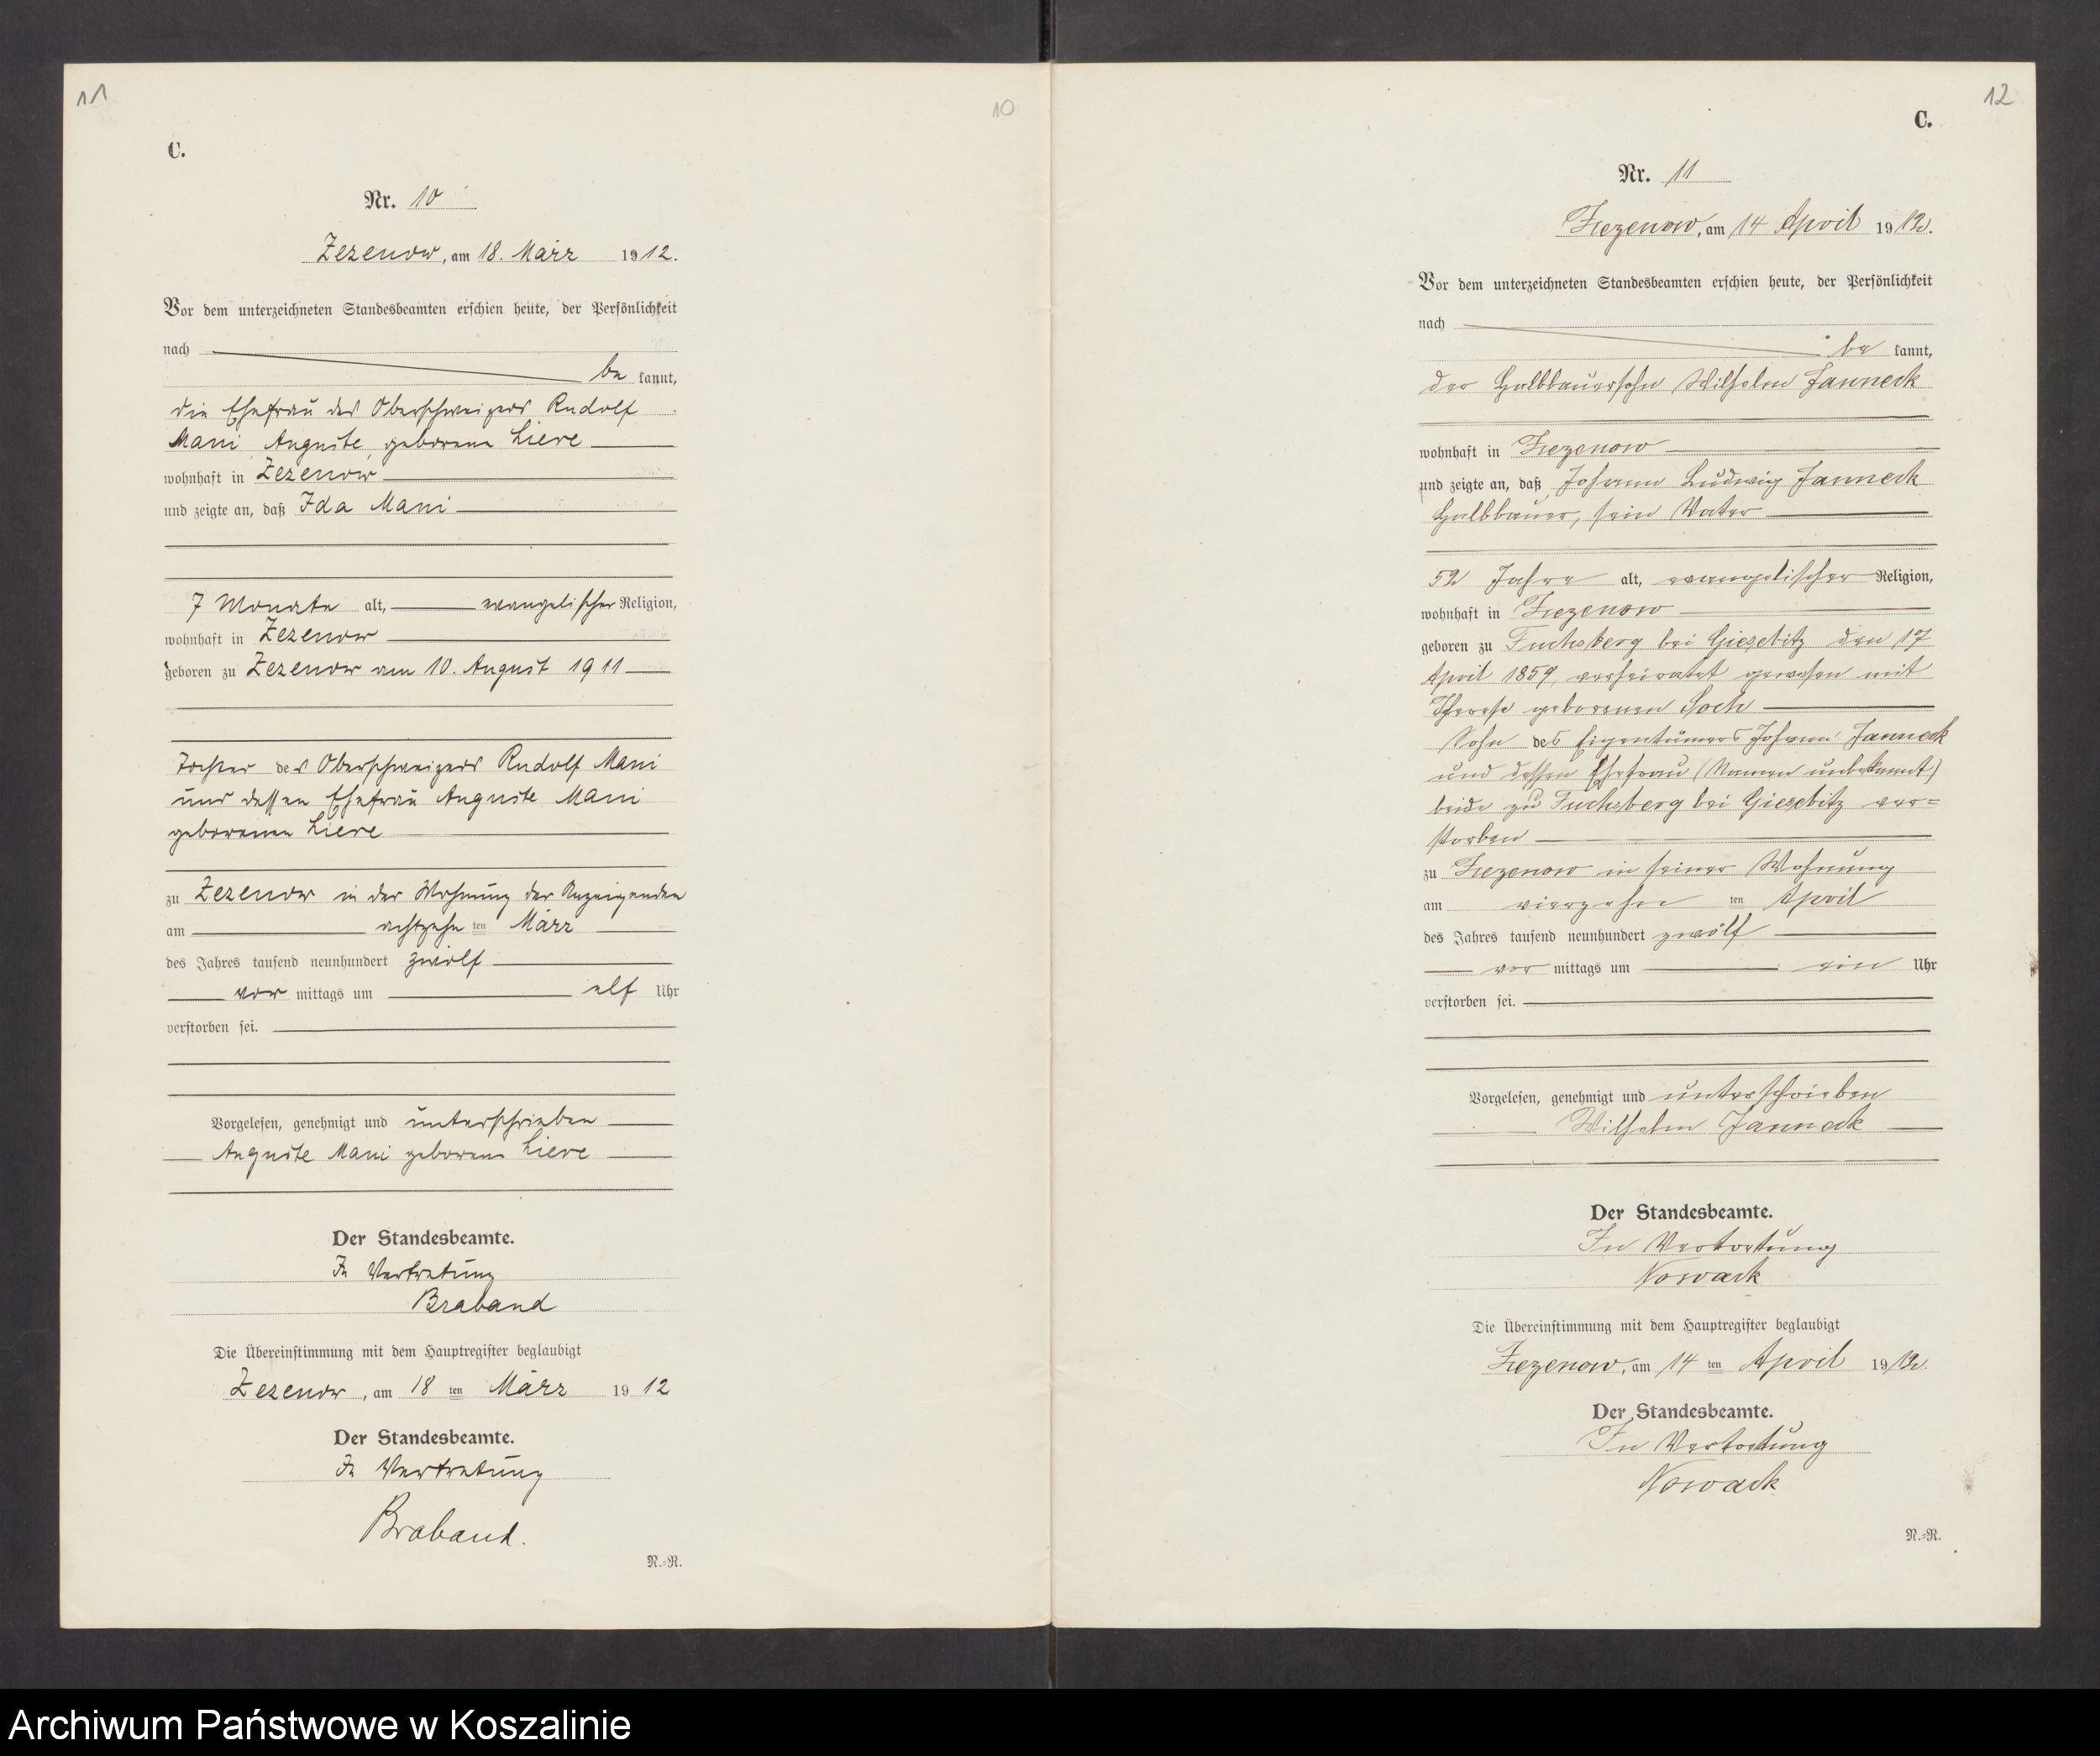 11
10
C.
Nr. 10
Zezenow, am 18. März 1912.
Vor dem unterzeichneten Standesbeamten erschien heute, der Persönlichkeit
nach
be kannt,
die Ehefrau des Oberschweizers Rudolf
Mani, Auguste, geborene Liere
wohnhaft in Zezenow
und zeigte an, daß Ida Mani
7 Monate alt, evangelischer Religion,
wohnhaft in Zezenow
geboren zu Zezenow am 10. August 1911
Tochter des Oberschweizers Rudolf Mani
und dessen Ehefrau Auguste Mani
geborenen Liere
zu Zezenow in der Wohnung der Anzeigenden
am achtzehn ten März
des Jahres tausend neunhundert zwölf
vor mittags um elf Uhr
verstorben sei.
Vorgelesen, genehmigt und unterschrieben
Auguste Mani geborene Liere
Der Standesbeamte.
In Vertretung
Braband
Die Übereinstimmung mit dem Hauptregister beglaubigt
Zezenow, am 18 ten März 1912
Der Standesbeamte.
In Vertretung
Braband.
N.-R.
12
C.
Nr. 11
Zezenow, am 14 April 1912.
Vor dem unterzeichneten Standesbeamten erschien heute, der Persönlichkeit
nach
be kannt,
der Halbbauersohn Wilhelm Janneck
wohnhaft in Zezenow
und zeigte an, daß Johann Ludwig Janneck
Halbbauer, sein Vater
52 Jahre alt, evangelischer Religion,
wohnhaft in Zezenow
geboren zu Fuchsberg bei Giesebitz den 17
April 1859, verheiratet gewesen mit
Therese geborenen Soch
Sohn des Eigentümers Johann Janneck
und dessen Ehefrau (Namen unbekannt)
beide zu Fuchsberg bei Giesebitz ver=
storben
zu Zezenow in seiner Wohnung
am vierzehn ten April
des Jahres tausend neunhundert zwölf
vor mittags um ein Uhr
verstorben sei.
Vorgelesen, genehmigt und unterschrieben
Wilhelm Janneck
Der Standesbeamte.
In Vertretung
Nowack
Die Übereinstimmung mit dem Hauptregister beglaubigt
Zezenow, am 14 ten April 1912.
Der Standesbeamte.
In Vertretung
Nowack
N.-R.
Archiwum Państwowe w Koszalinie